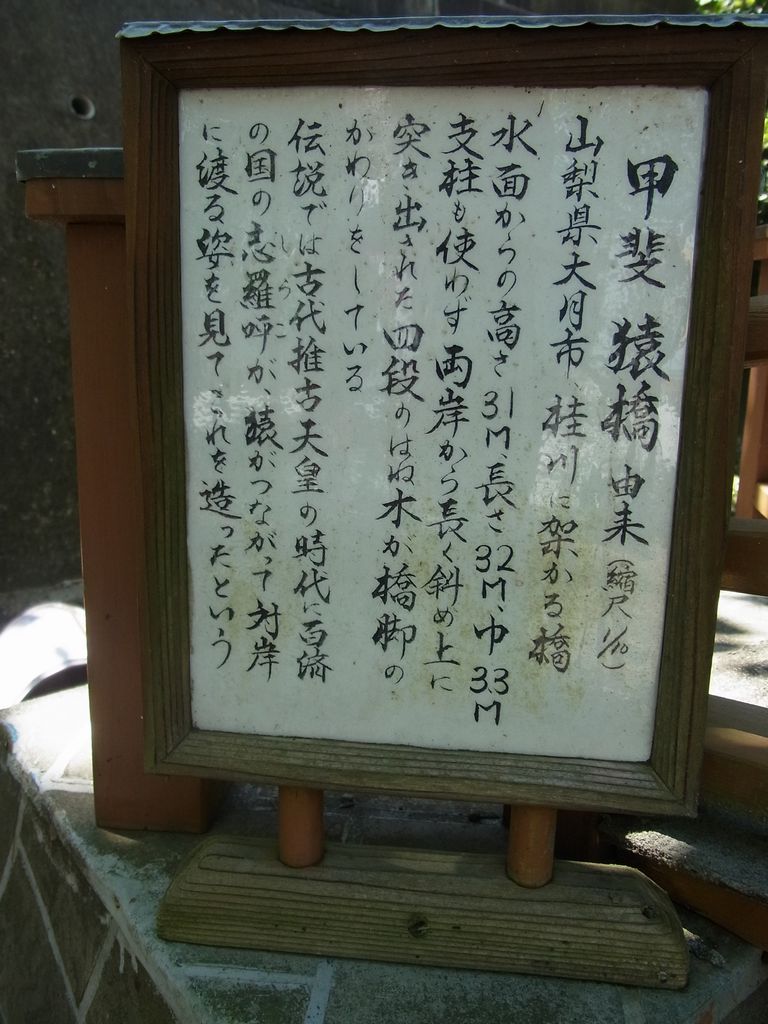 甲斐 猿橋 由来（縮尺 1/10）
山梨県大月市、桂川に架かる橋
水面からの高さ 31M、長さ 32M、巾 3.3M
支柱も使わず両岸から長く斜め上に
突き出された四段のはね木が橋脚の
かわりをしている
伝説では古代推古天皇の時代に百済
の国の志羅呼が、猿がつながって対岸
しらこ
に渡る姿を見てこれを造ったという